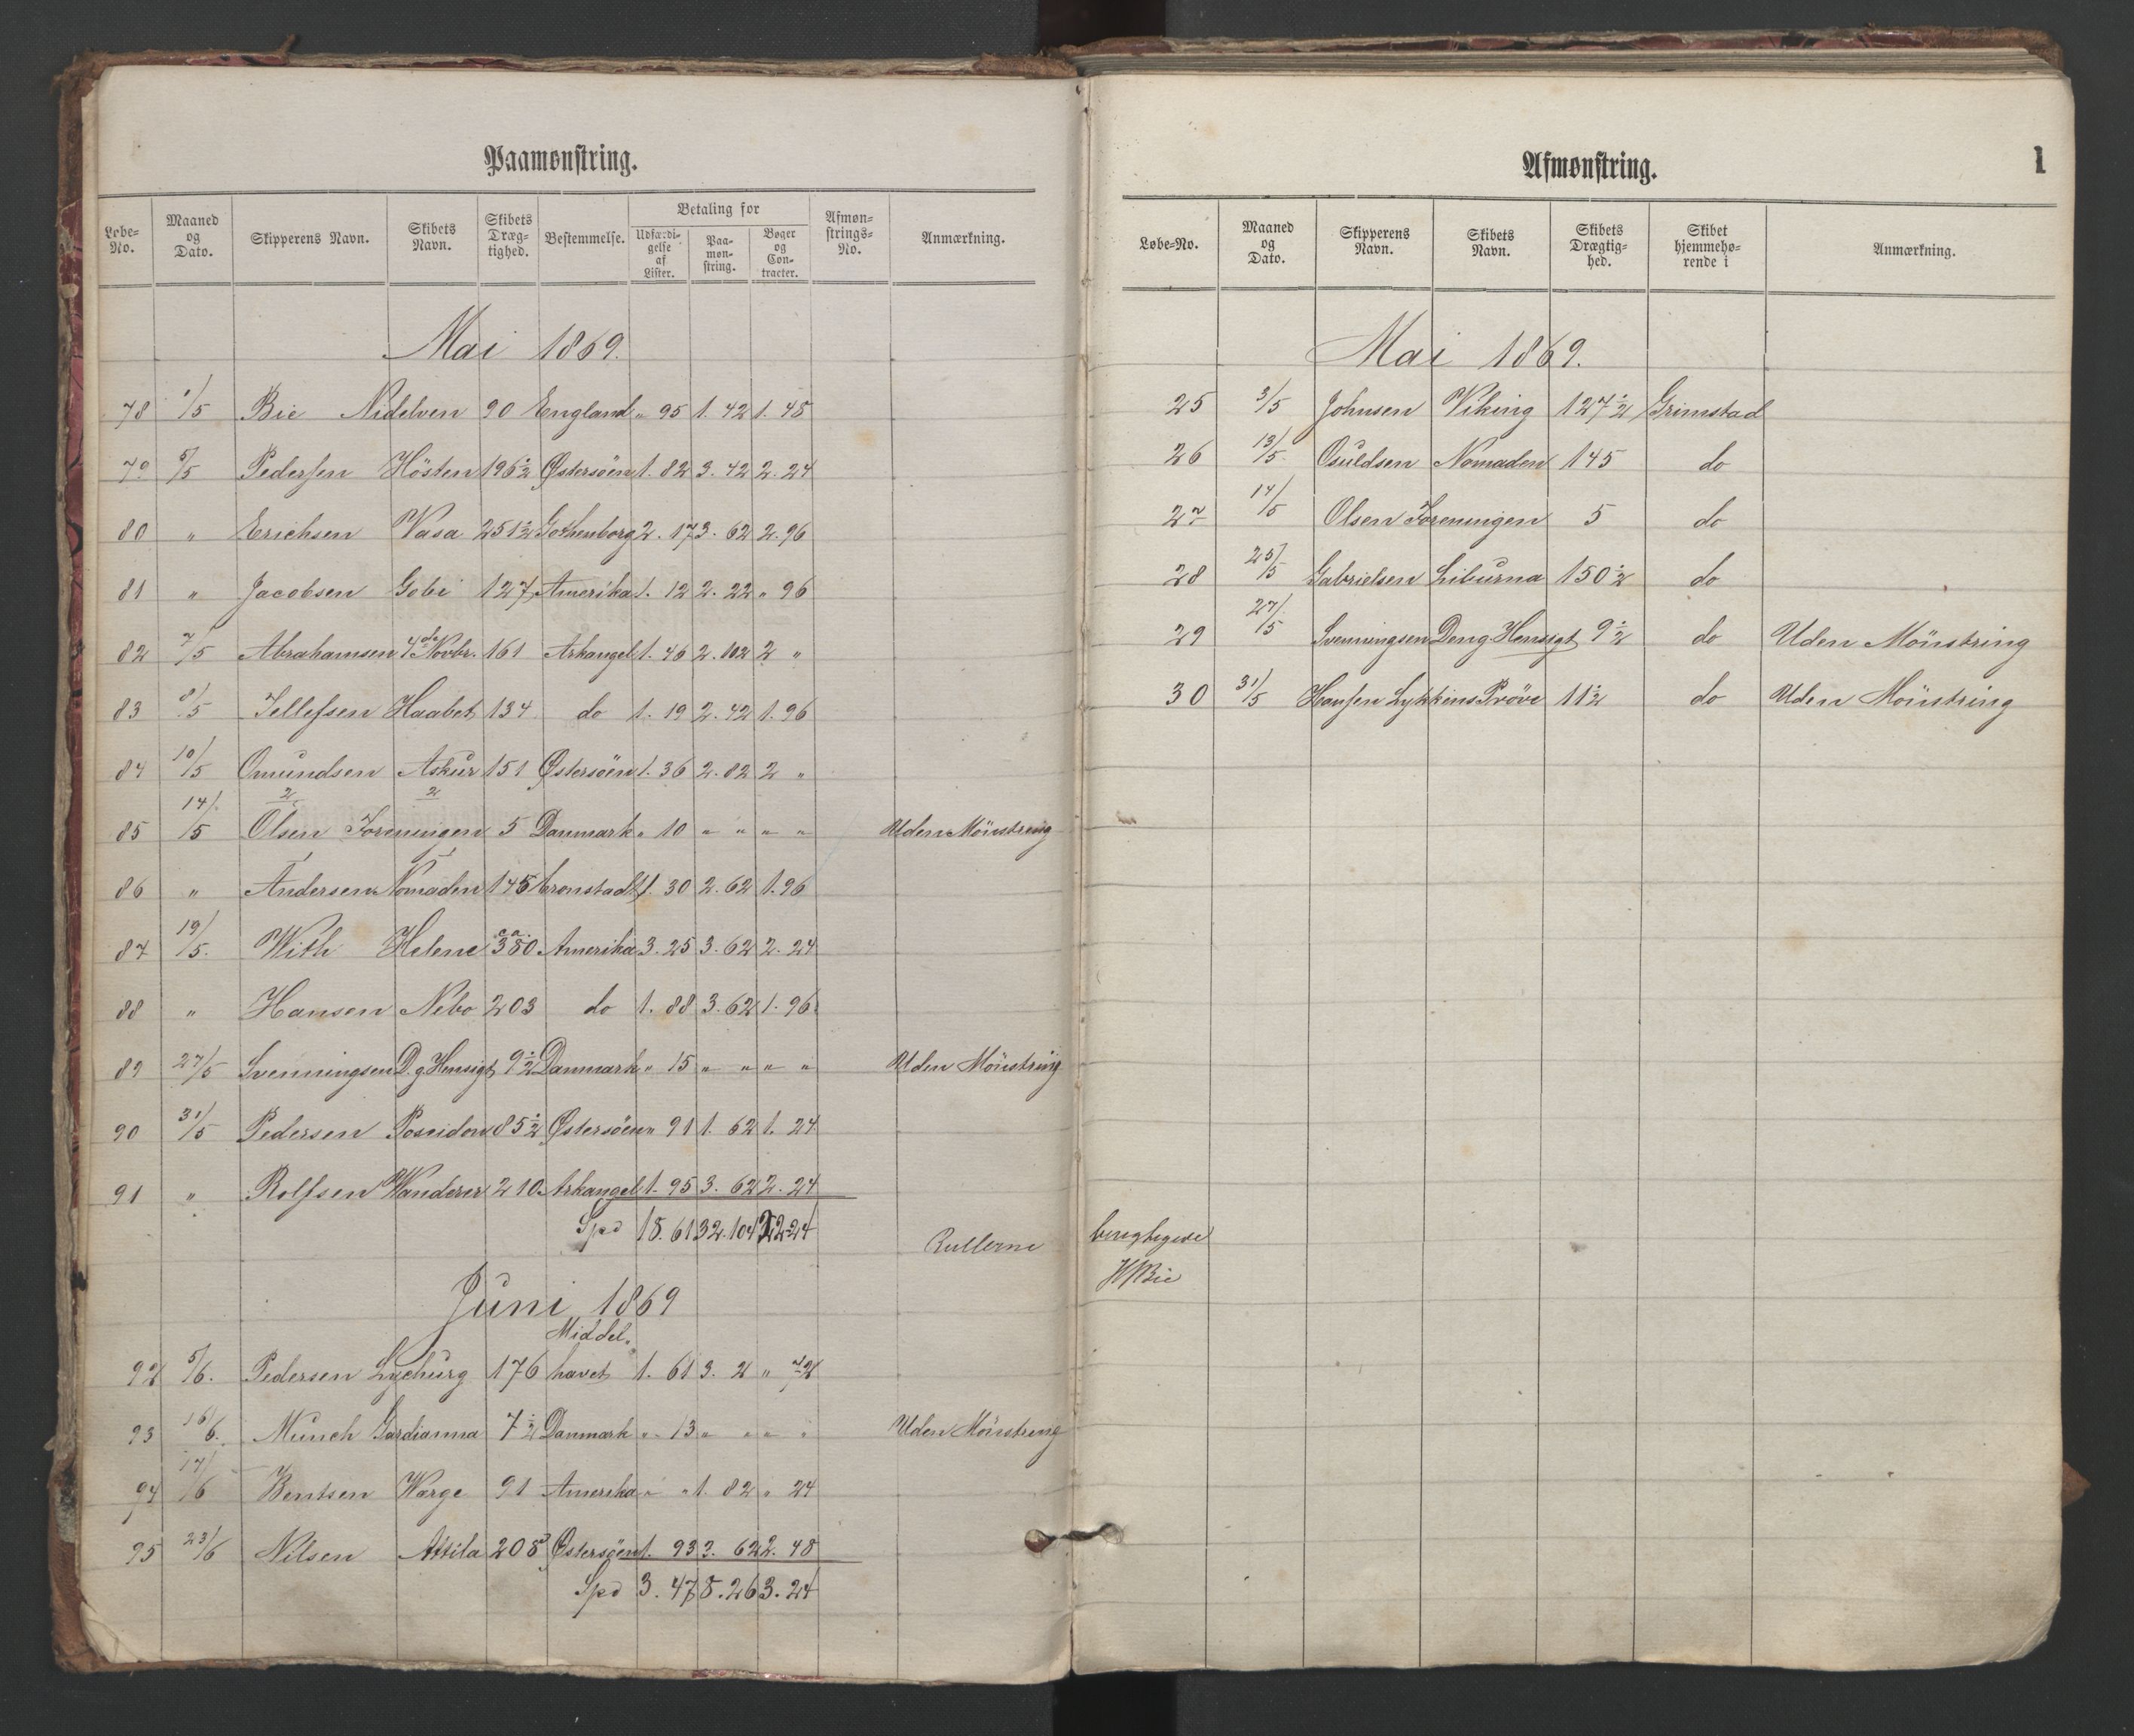 Paamønstring.
Løbe-No. Maaned og Dato. Skipperens Navn. Skibets Navn. Skibets Dræg-tighed. Bestemmelse. Betaling for Udfærdi-gelse af Lister. Paa-møn-string. Bøger og Con-tracter. Afmøn-strings-No. Anmærkning.
Mai 1869.
78 1/5 Bie Nidelven 90 England " 95 1. 42 1. 48
79 5/5 Pedersen Hösten 196 1/2 Østersöen 1. 82 3. 42 2. 24
80 " Erichsen Wasa 251 1/2 Gothenborg 2. 17 3. 62 2. 96
81 " Jacobsen Gobi 127 Amerika 1. 12 2. 22 " 96
82 7/5 Abrahamsen 4de Novbr. 161 Arkangel 1. 46 2. 102 2 "
83 8/5 Tellefsen Haabet 134 do 1. 19 2. 42 1. 96
84 10/5 Omundsen Askur 151 Østersöen 1. 36 2. 82 2 "
2 2
85 14/5 Olsen Foreningen 5 Danmark " 10 " " " " Uden Mönstring
1 1
86 " Andersen Nomaden 145 Cronstadt 1. 30 2. 62 1. 96
87 19/5. With Helene ca. 380 Amerika 3. 25 3. 62 2. 24
88 " Hansen Nebo 203 do 1. 88 3. 62 1. 96
89 27/5 Svenningsen D. g. Hensigt 9 1/2 Danmark " 15 " " " " Uden Mönstring
90 31/5 Pedersen Poseidon 85 1/2 Østersöen " 91 1. 62 1. 24
91 " Rolfsen Wanderer 210 Arkangel 1. 95 3. 62 2. 24
Spd 18. 61 32. 104 22 24
Rullerne berigtigede
HBie
Juni 1869
92 5/6. Pedersen Lycburg 176 Middel-havet 1. 61 3. 2 " 72
93 16/6. Munch Gardianna 7 1/2 Danmark " 13 " " " " Uden Mönstring
94 17/6 Bentsen Warge 91 Amerika " " 1. 82 " 24
95 23/6 Nilsen Attila 208 Østersöen 1. 93 3. 62 2. 48
Spd 3. 47 8. 26 3. 24
Afmønstring.
1
Løbe-No. Maaned og Dato. Skipperens Navn. Skibets Navn. Skibets Drægtig-hed. Skibet hjemmehø-rende i Anmærkning.
Mai 1869.
25 3/5 Johnsen Viking 127 1/2 Grimstad
26 13/5. Osuldsen Nomaden 145 do
27 14/5 Olsen Foreningen 5 do
28 25/5 Gabrielsen Liburna 150 1/2 do
29 27/5 Svenningsen Den g Hensigt 9 1/2 do Uden Mönstring
30 31/5 Hansen Lykkens Pröve 11 1/2 do Uden Mönstring